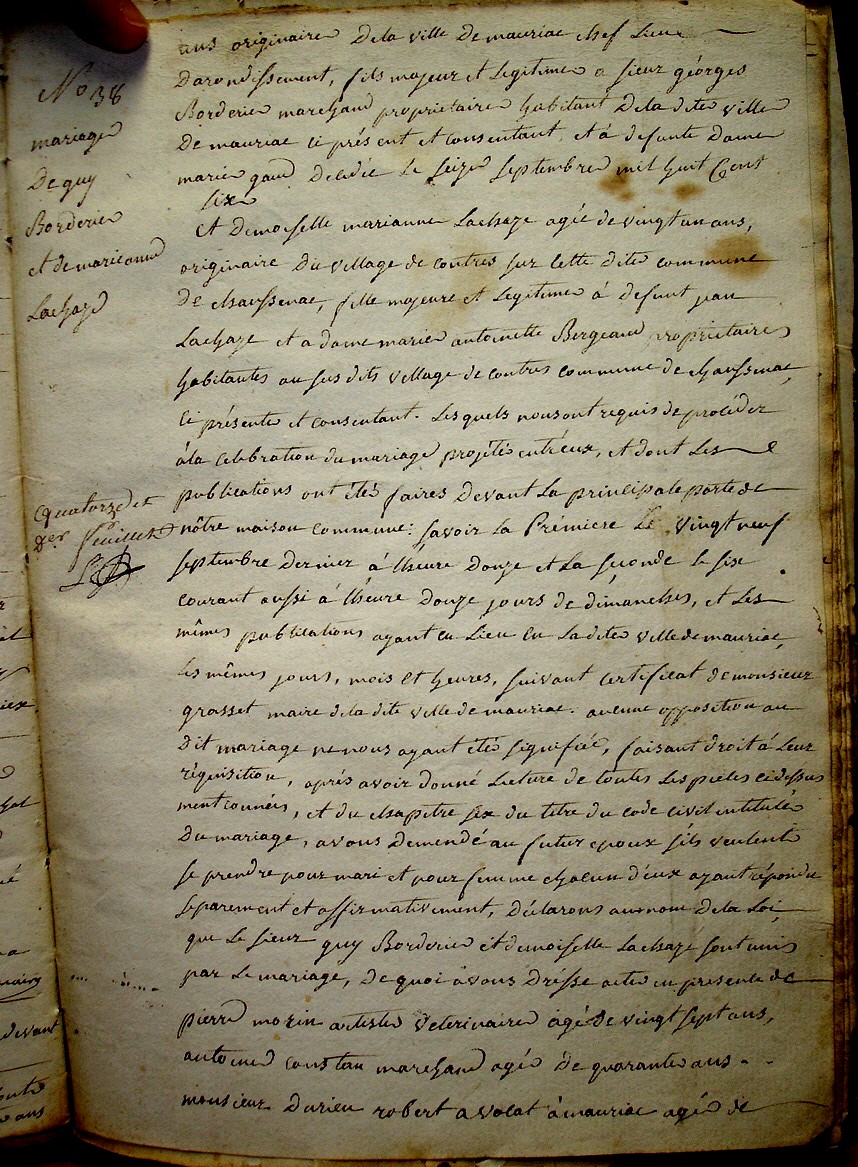 No 38
mariage
De guy
Borderie
et de marieanne
Lachaze
quatorze et
der feuillet
ans originaire Dela ville De mauriac chef Lieu
Darondissement, fils majeur et Legitime a sieur géorges
Borderie marchand propriétaire habitant Dela dite ville
De mauriac ci présent et consentant, et à defunte Dame
marie gaud Decedée Le seize septembre mil huit Cens
six
et Demoiselle marianne Lachaze agée de vingt un ans,
originaire Du village de contres sur cette Dite commune
de chaussenac, fille majeure et Legitime à defunt jean
Lachaze et a dame marie antoinette Bergeaud propriétaires
habitantes au susdits village de contres commune de chaussenac,
ci présente et consentant. Lesquels nous ont requis de procéder
àla celebration du mariage projété entr'eux, et dont Les
publications ont étés faires Devant La principale porte de
nôtre maison commune: savoir La Premiere Le vingt neuf
septembre Dernier à Lheure Douze et La seconde le six
courant aussi à Lheure Douze jours de dimanches, et Les
mêmes publications ayant eu Lieu en La dite ville de mauriac,
Les mêmes jours, mois et heures, suivant certificat de monsieur
grasset maire dela dite ville de mauriac. aucune opposition au
Dit mariage ne nous ayant étés signifiée, faisant droit à Leur
réquisition, aprés avoir donné Lecture de toutes Les pieces cidessus
mentionnées, et du chapitre six du titre du code civil intitulé
Du mariage, avons Demendé au futur epoux s'ils veulent
se prendre pour mari et pour femme chacun d'eux ayant répondu
séparement et affirmativement, Déclarons au nom Dela Loi
que Le sieur guy Borderie et demoiselle Lachaze sont unis
par Le mariage, De quoi avons Drésse acte en presence de
pierre morin artiste veterinaire agé De vingt sept ans,
antoine constan marchand agé De quarante ans.
monsieur Durieu robert avocat à mauriac agé de